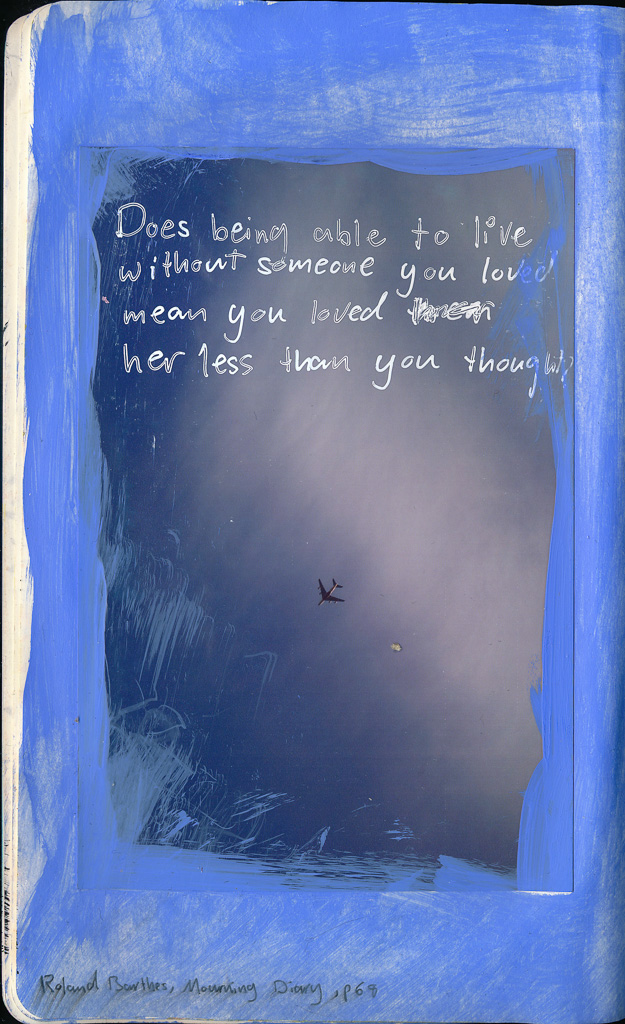 Does being able to live
without someone you loved
mean you loved them
her less than you thought?
Roland Barthes, Mourning Diary, p68